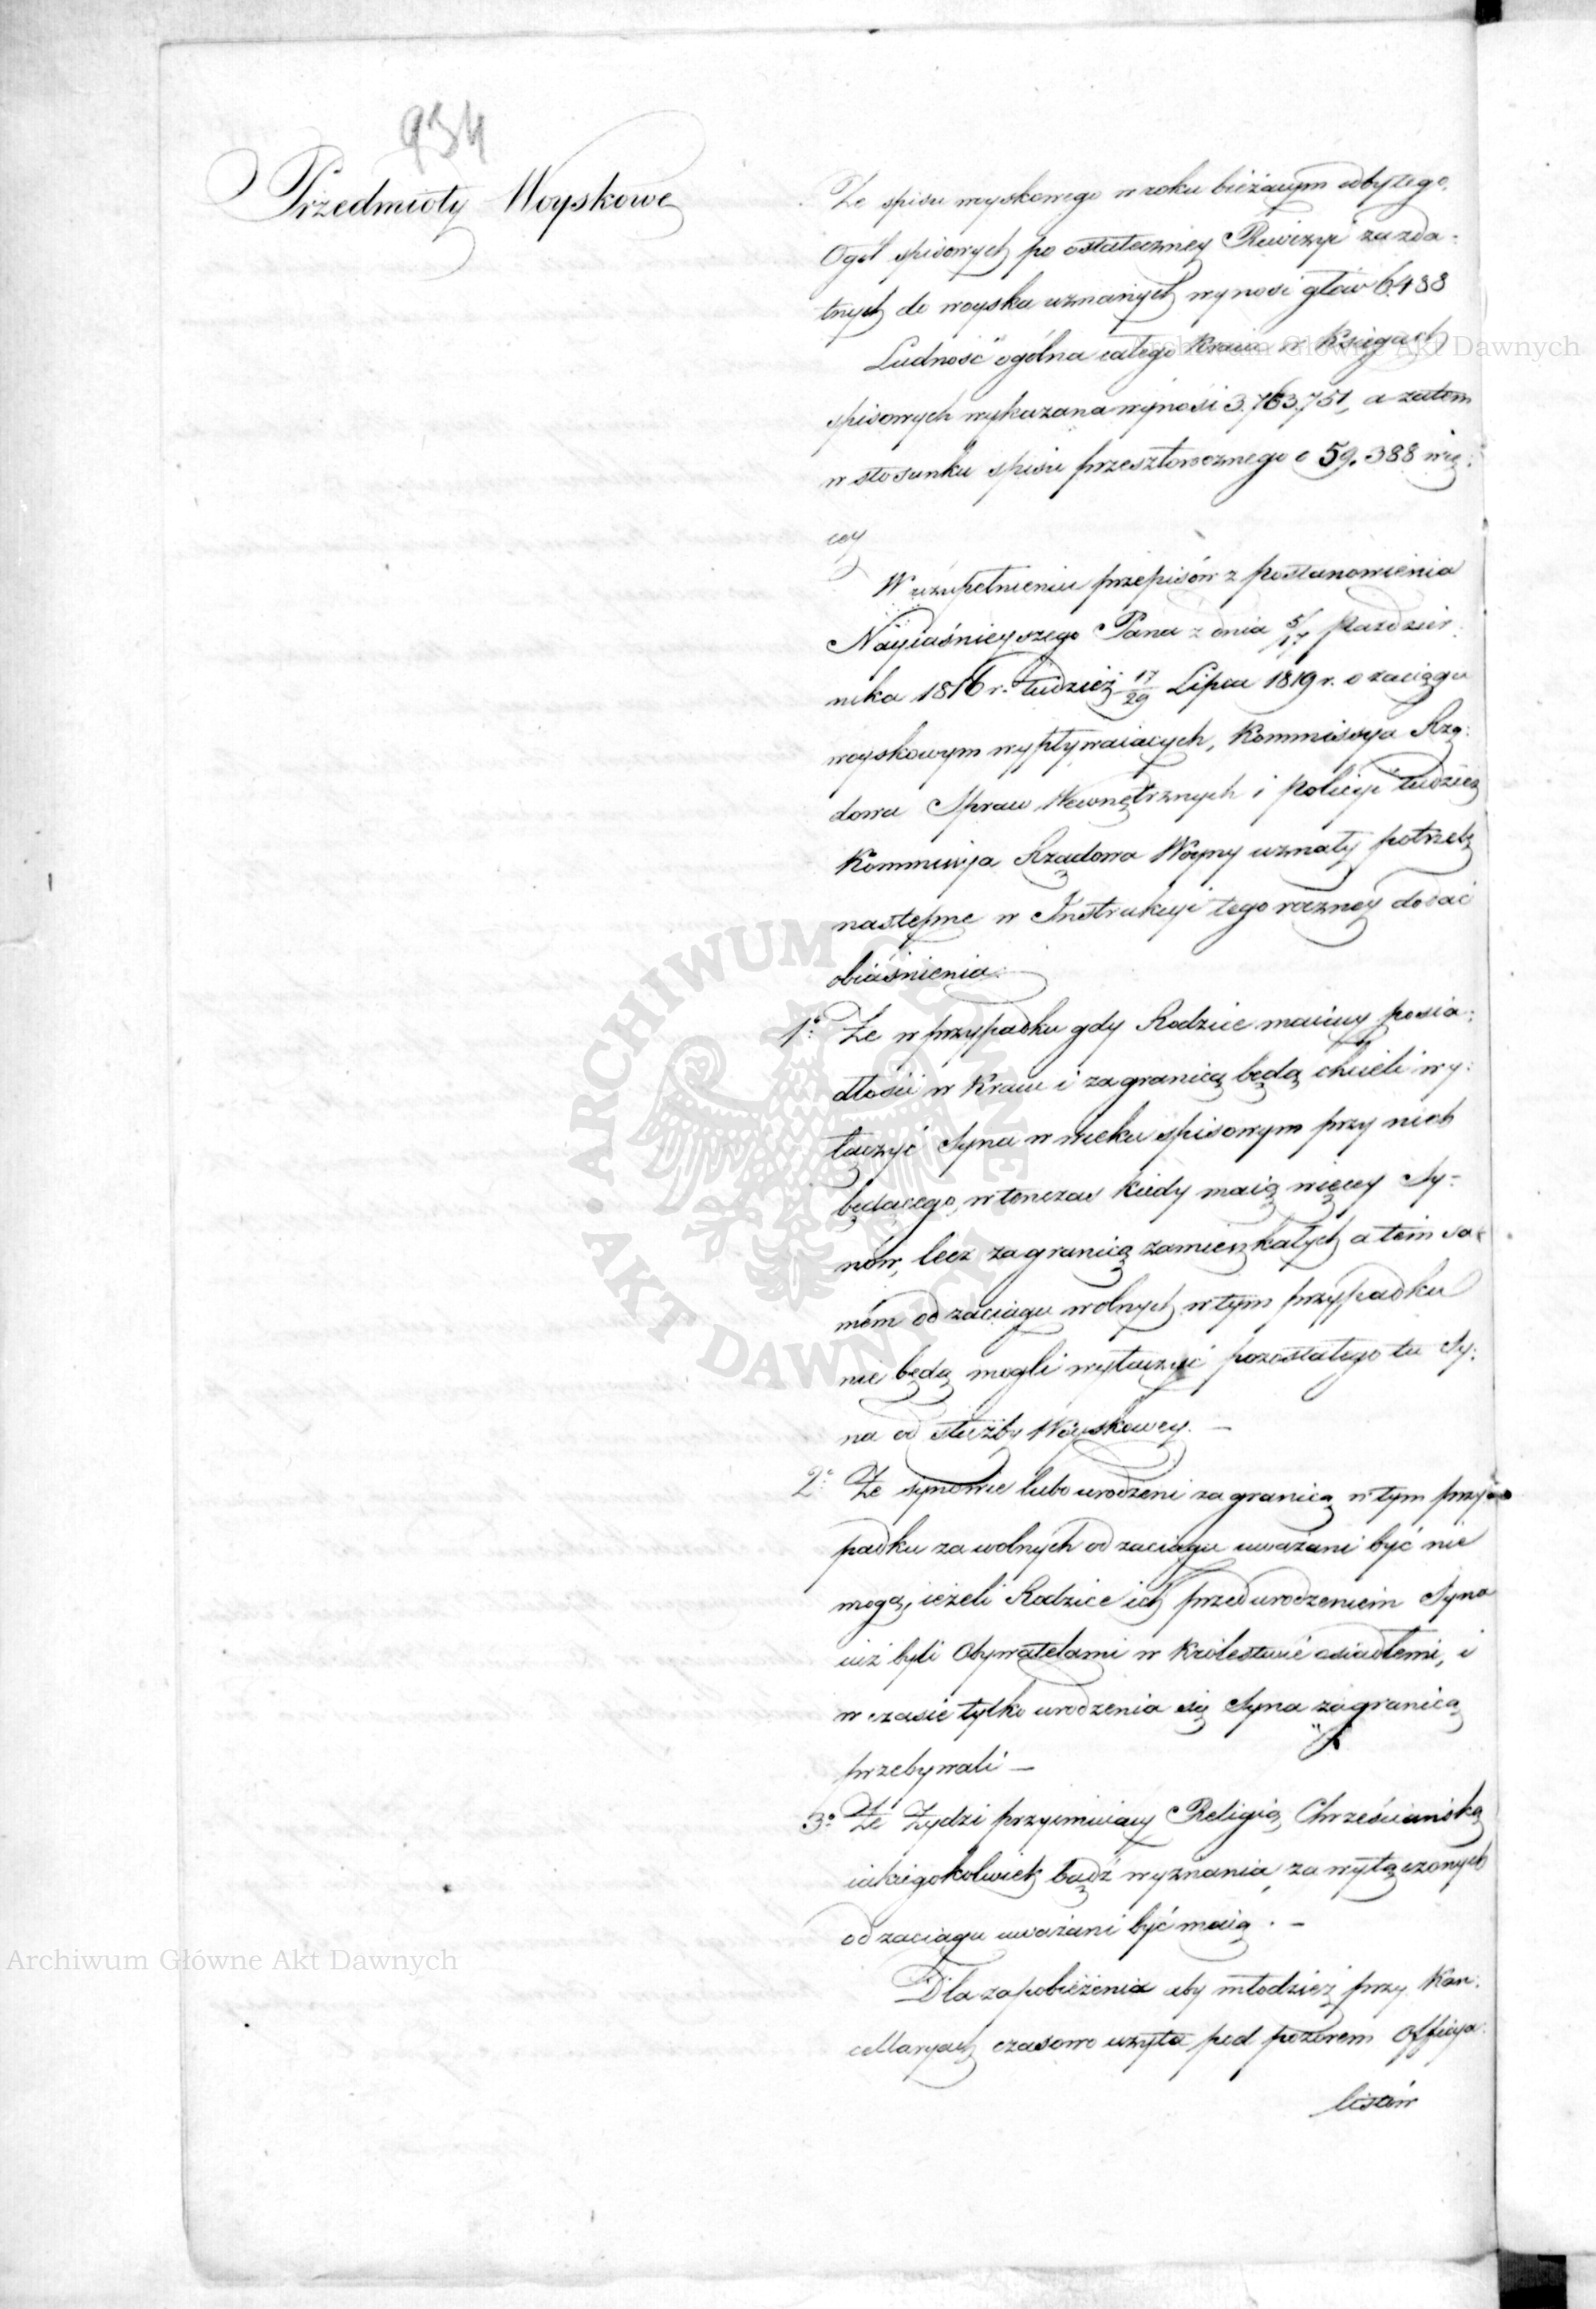 934
Przedmioty Woyskowe
Ze spisu woyskowego w roku bieżącym odbytego,
Ogół spisowych po ostateczney Rewizyi za zda-
tnych do woyska uznanych wynosi głów 6.488
Ludność ogólna całego Kraiu w Księgach
spisowych wykazana wynosi 3.763.751, a zatem
w stosunku spisu przeszłorocznego o 59.388 wię-
cey
W uzupełnieniu przepisów z postanowienia
Nayiaśnieyszego Pana z dnia 5/17 Paździer-
nika 1816 r. tudzież 17/29 Lipca 1819 r. o zaciągu
woyskowym wypływaiących, Kommissya Rzą-
dowa Spraw Wewnętrznych i Policyi tudzież
Kommissya Rządowa Woyny uznały potrzebę
następne w Instrukcyi tegoroczney dodać
obiaśnienia:
1° Że w przypadku gdy Rodzice maiący posia-
dłości w Kraiu i zagranicą będą chcieli wy-
łączyć Syna w wieku spisowym przy nich
będącego, wtenczas kiedy maią więcey Sy-
nów, lecz zagranicą zamieszkałych a tem sa-
mém od zaciągu wolnych w tym przypadku
nie będą mogli wyłączyć pozostałego tu Sy-
na od służby Woyskowey. –
2° Że synowie lubo urodzeni zagranicą w tym przy-
padku za wolnych od zaciągu uważani być nie
mogą, ieżeli Rodzice ich przed urodzeniem Syna
iuż byli Obywatelami w Królestwie osiadłemi, i
w czasie tylko urodzenia się Syna zagranicą
przebywali –
3° Że Żydzi przyimuiący Religią Chrześciańską
iakiegokolwiek bądź wyznania, za wyłączonych
od zaciągu uważani być maią. –
Dla zapobieżenia aby młodzież przy Kan-
cellaryach czasowo użyta pod pozorem Officya-
listów
Archiwum Główne Akt Dawnych
Archiwum Główne Akt Dawnych
ARCHIWUM GŁÓWNE · AKT DAWNYCH ·